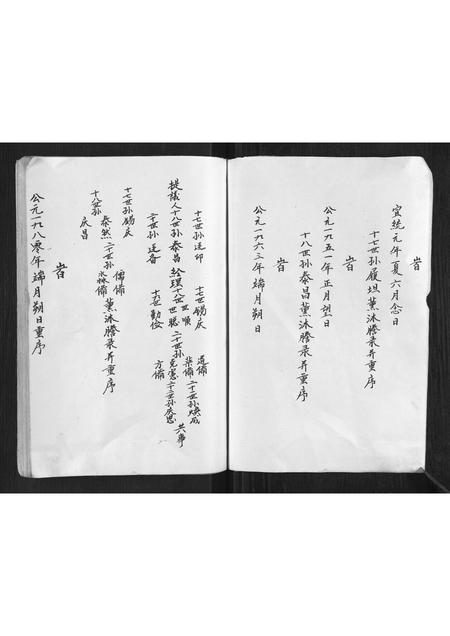 旹
宣統元年夏六月念日
十七世孫履坦薰沐謄录并重序
旹
公元一九五一年正月望日
十八世孙泰昌薰沐謄录并重序
旹
公元一九六三年端月朔日
十七世孙廷印 十七世錫庆
提議人十八世孙泰昌 経理十八世
世順
世聪
二十世孙
道備
柒備
克寬
方備
二十二世孙
共事
二十世孙廷香 十九世勤俭
十七世孙錫庆
十八世孙
泰然
庆昌
二十世孙
儒備
永林備
薰沐謄录并重序
旹
公元一九八零年端月朔日重序